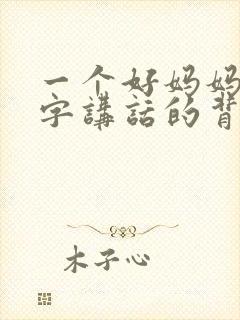 一个好妈妈
字講話的背
木子心